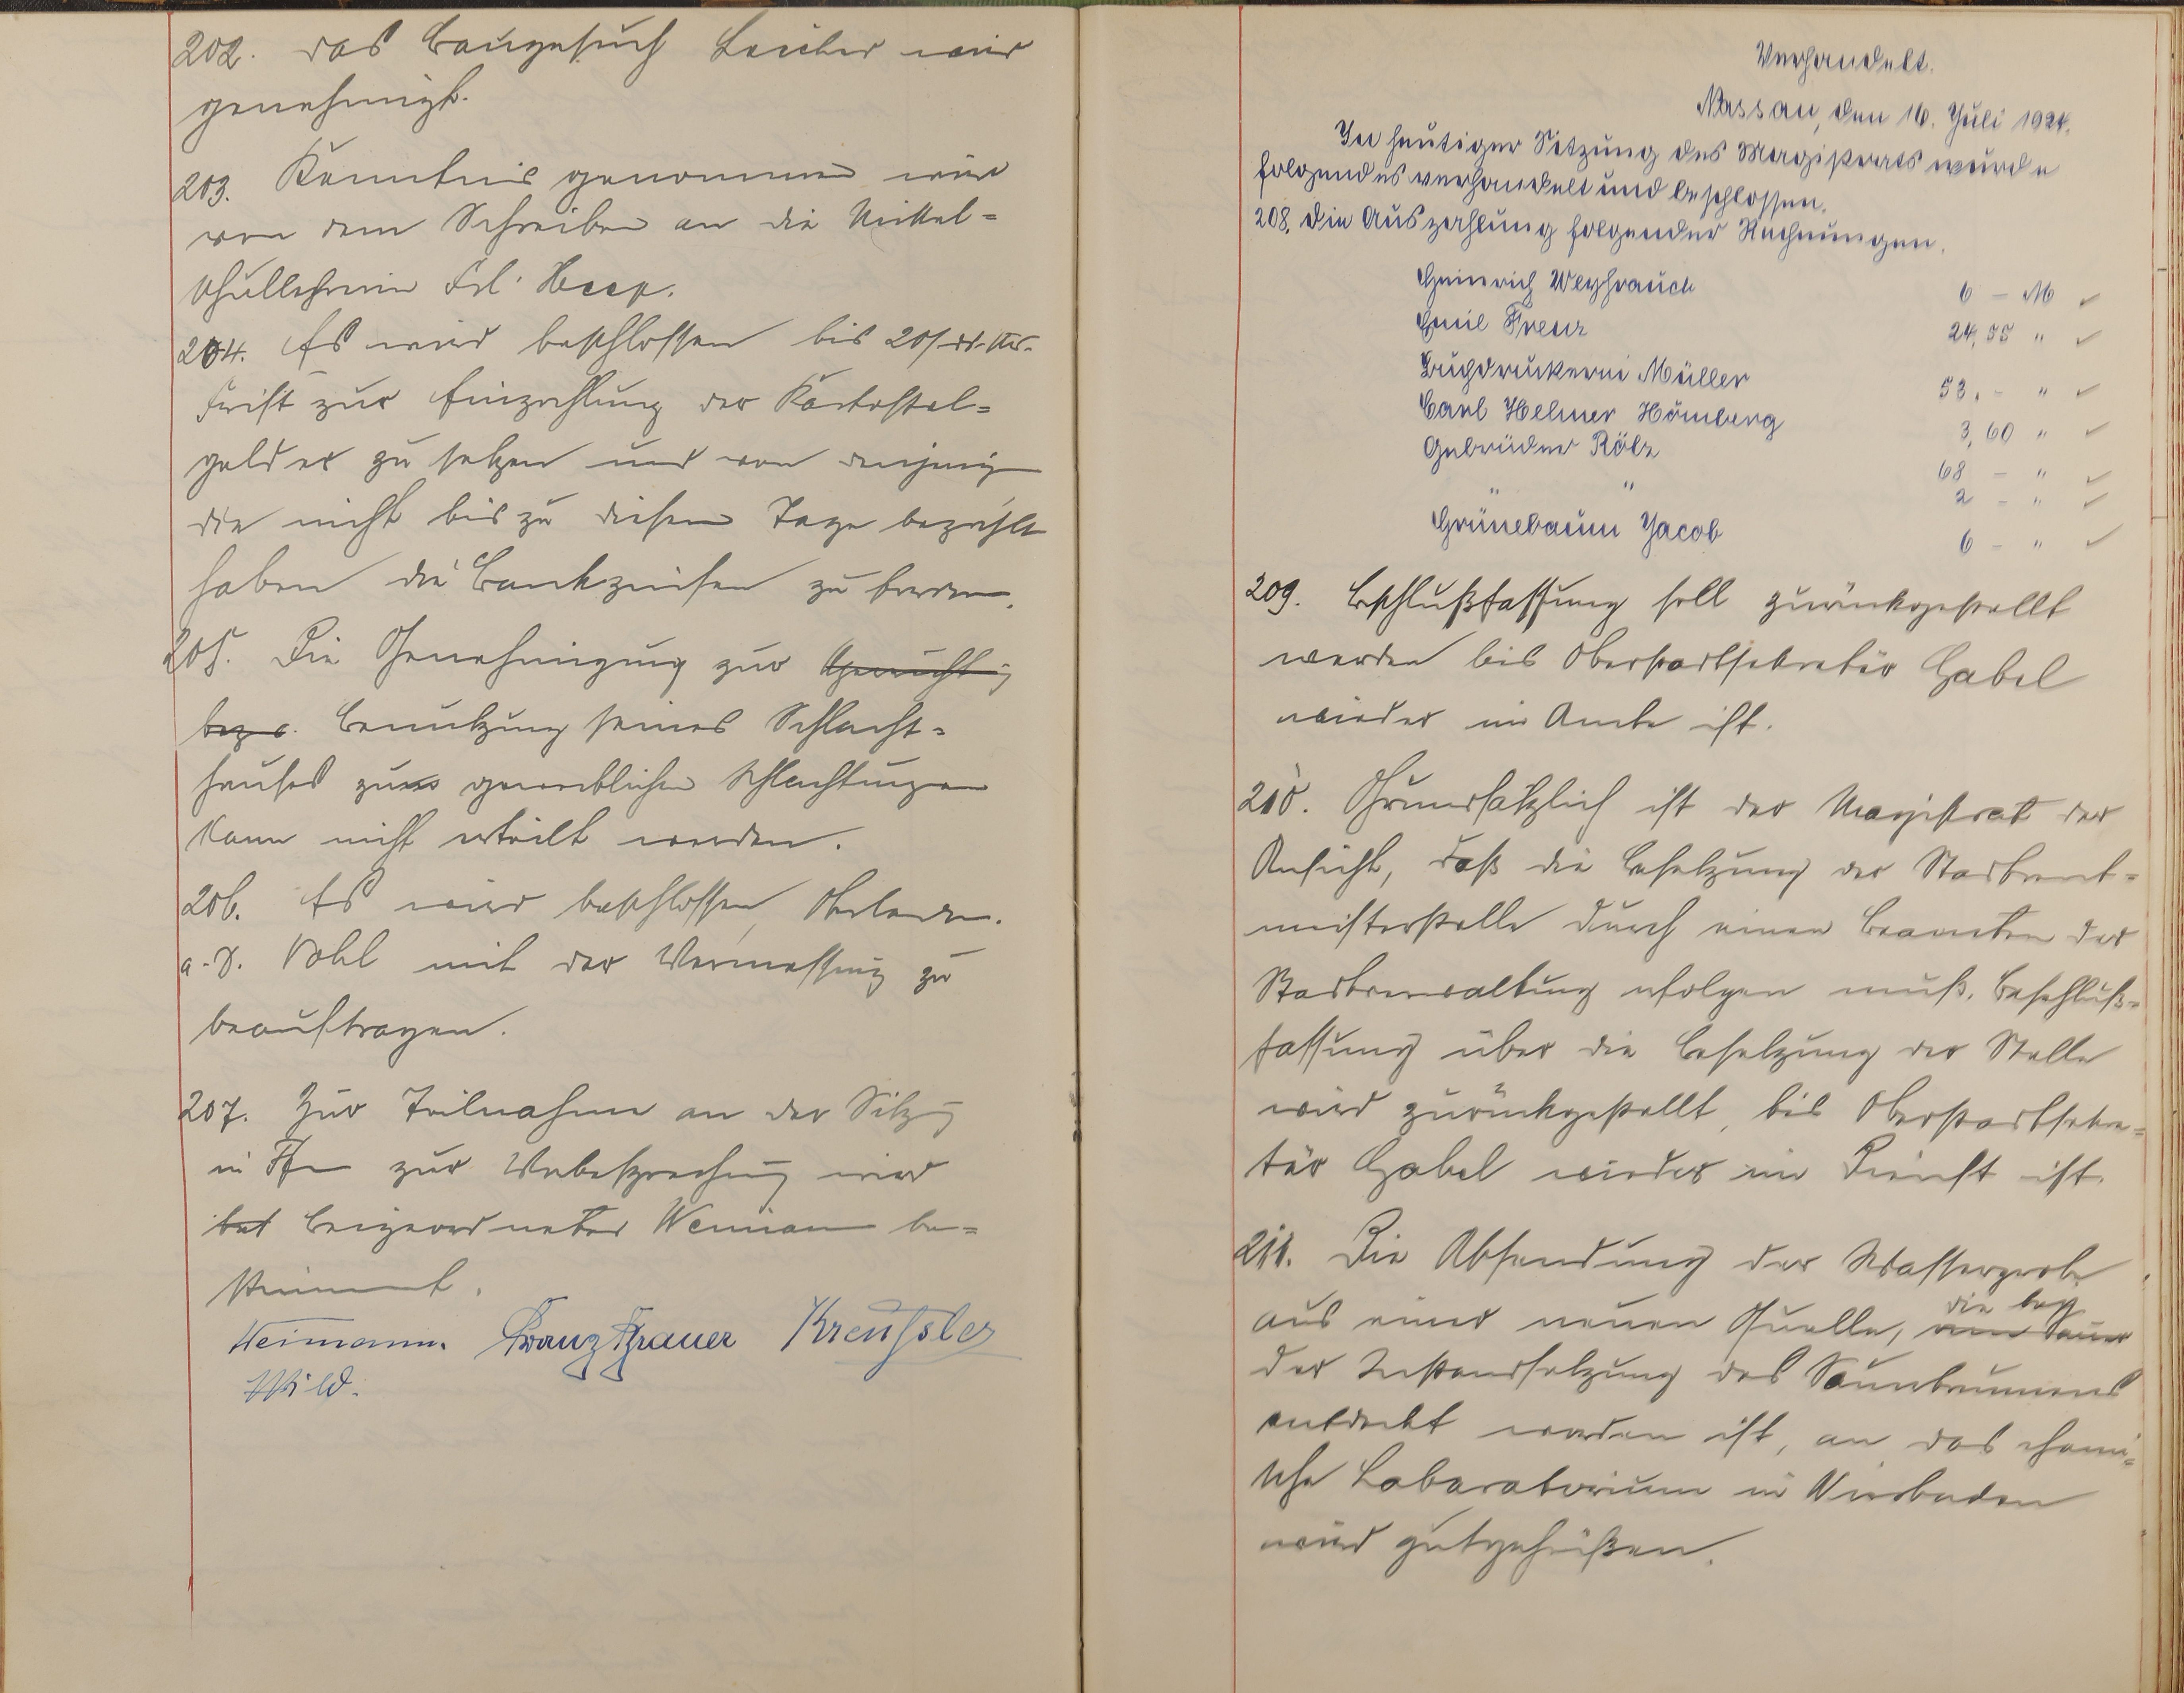 202. Das Baugesuch Leicher wird
genehmigt.
203. Kenntnis genommen wird
von dem Schreiben an die Mittel-
schullehrerin Frl. Heep.
204. Es wird beschlossen bis 20/ds. Mts.
Frist zur Einzahlung der Kartoffel-
gelder zu setzen und von denjenigen
die nicht bis zu diesem Tage bezahlt
haben die Bankzinsen zu fordern.
205. Die Genehmigung zur
bezw. Benutzung seines Schlacht-
hauses zu gewerblichen Schlachtungen
kann nicht erteilt werden.
206. Es wird beschlossen,
a. D. Pohl mit der Vermessung zu
beauftragen.
207. Zur Teilnahme an der Sitzung
in zur Vorbesprechung wird
Beigeordneter Weimann be-
stimmt.
Weimann. Franz Thauer Kreussler
Wild.
Verhandelt.
Nassau, den 16. Juli 1924.
In heutiger Sitzung des Magistrats wurde
folgendes verhandelt und beschlossen.
208. Die Auszahlung folgender Rechnungen.
Heinrich Weyhrauch 6 – M ✓
Emil Trenz 24,55 " ✓
Buchdruckerei Müller 53. – " ✓
Carl Helmer Hömberg 3,60 " ✓
Gebrüder Rölz 68 – " ✓
" " 2 – " ✓
Grünebaum Jacob 6 – " ✓
209. Beschlußfassung soll zurückgestellt
werden bis Oberstadtsekretär Gabel
wieder im Amte ist.
210. Grundsätzlich ist der Magistrat der
Ansicht, daß die Besetzung der Stadtrent-
meisterstelle durch einen Beamten der
Stadtverwaltung erfolgen muß. Beschluß-
fassung über die Besetzung der Stelle
wird zurückgestellt, bis Oberstadtsekre-
tär Gabel wieder im Dienst ist.
211. Die Absendung der Wasserprobe
aus einer neuen Quelle, die bei
der Instandsetzung des Sauerbrunnens
entdeckt worden ist, an das chemi-
sche Labaratorium in Wiesbaden
wird gutgeheißen.